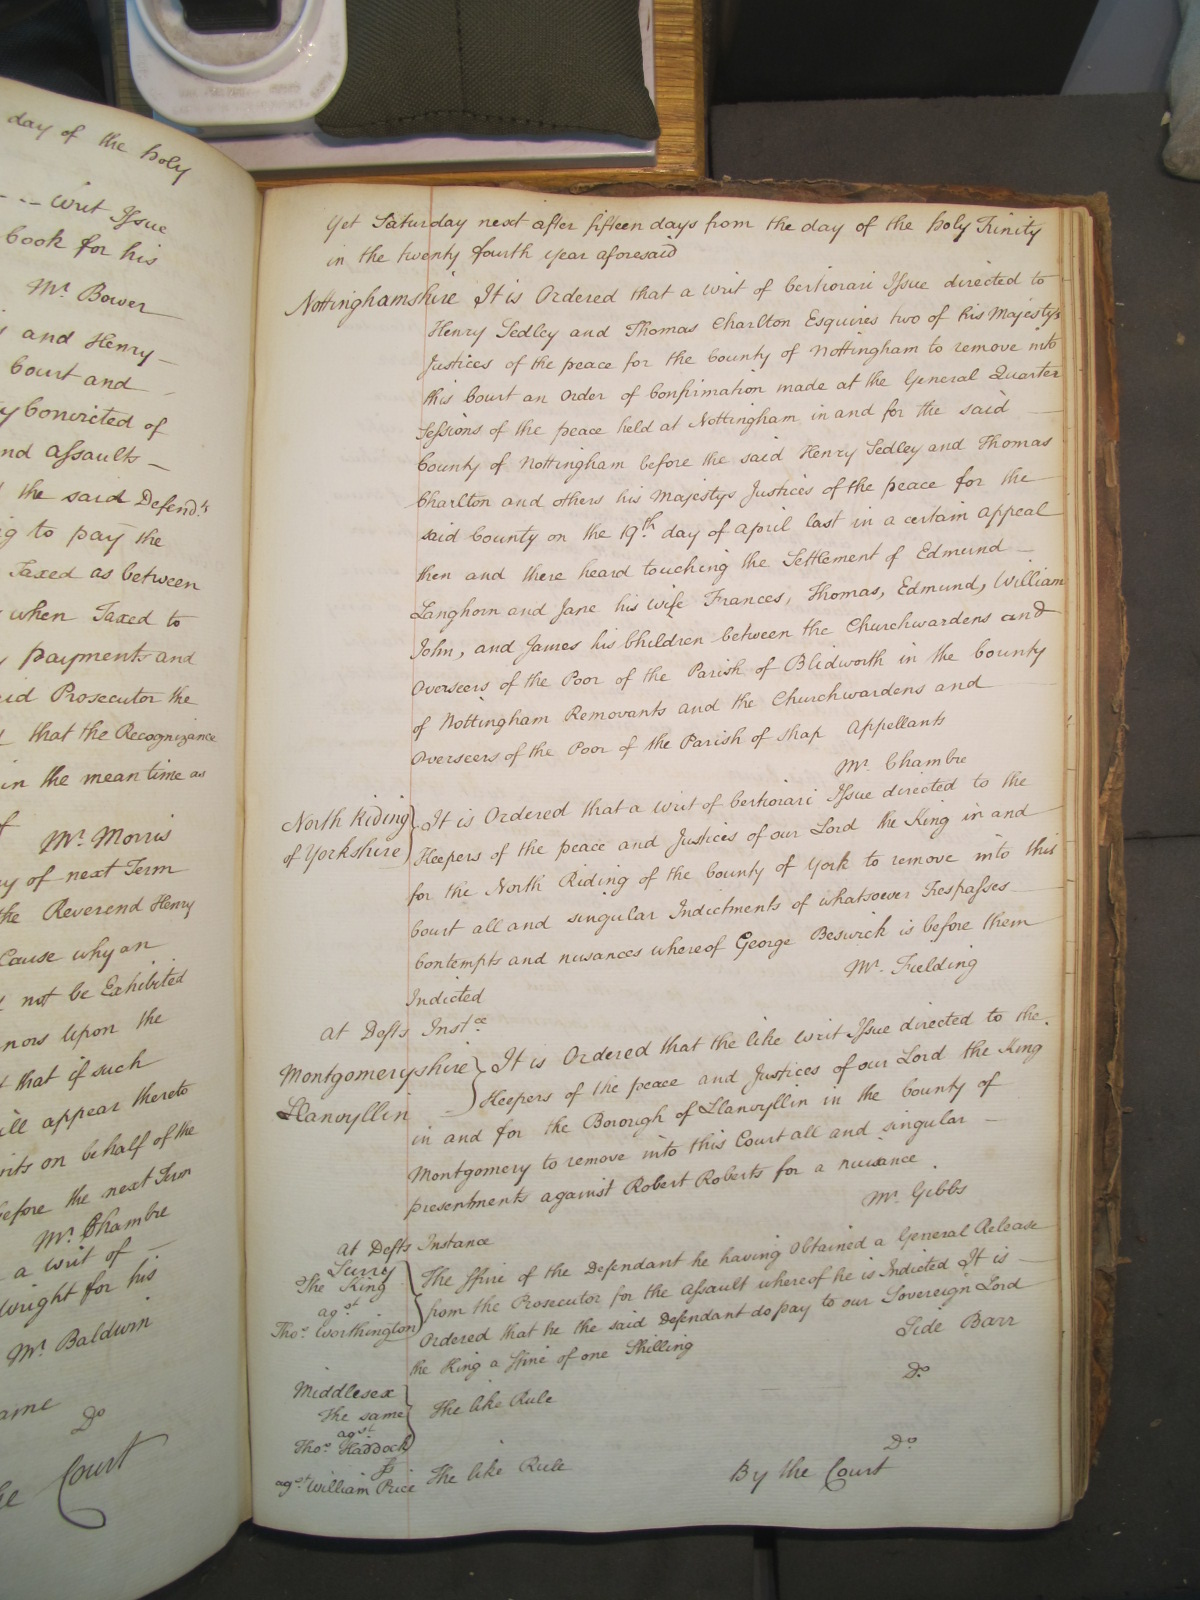 day of the Holy
writ Issue
book for his
Mr. Bower
and Henry
Court and
Convicted of
nd assaults
the said Defend.ts
g to pay the
Taxed as between
when Taxed to
payments and
id Prosecutor the
that the Recognizance
in the mean time as
f
Mr. Morris
y of next Term
the Reverend Henry
Cause why an
not be Exhibited
nors upon the
that if such
ill appear thereto
rits on behalf of the
before the next Term
Mr. Chambre
a writ of
Wright for his
Mr. Baldwin
ame
Do
Court
Yet Saturday next after fifteen days from the day of the Holy Trinity
in the twenty fourth year aforesaid
Nottinghamshire It is Ordered that a writ of Certiorari Issue directed to
Henry Sedley and Thomas Charlton Esquires two of his Majestys
Justices of the peace for the County of Nottingham to remove into
this Court an Order of Confirmation made at the General Quarter
Sessions of the peace held at Nottingham in and for the said
County of Nottingham before the said Henry Sedley and Thomas
Charlton and others his Majestys Justices of the peace for the
said County on the 19th day of April last in a certain Appeal
then and there heard touching the Settlement of Edmund
Langhorn and Jane his wife Frances, Thomas, Edmund, William
John, and James his Children between the Churchwardens and
Overseers of the Poor of the Parish of Blidworth in the County
of Nottingham Removants and the Churchwardens and
Overseers of the Poor of the Parish of Shap Appellants
Mr. Chambre
North Riding of Yorkshire } It is Ordered that a writ of Certiorari Issue directed to the
Keepers of the peace and Justices of our Lord the King in and
for the North Riding of the County of York to remove into this
Court all and singular Indictments of whatsoever Trespasses
Contempts and nusances whereof George Beswick is before them
Indicted
Mr. Fielding
At Defts Inst.ce
Montgomeryshire Llanvyllin } It is Ordered that the like writ Issue directed to the
Keepers of the peace and Justices of our Lord the King
in and for the Borough of Llanvyllin in the County of
Montgomery to remove into this Court all and singular
presentments against Robert Roberts for a nusance
Mr. Gibbs
At Defts Instance
Surry
The King
ag.st
Tho.s Worthington } The ffine of the Defendant he having Obtained a General Release
from the Prosecutor for the Assault whereof he is Indicted It is
Ordered that he the said Defendant do pay to our Sovereign Lord
the King a ffine of one Shilling
Side Barr
Middlesex
The same
ag.st
Tho.s Haddock } The like Rule
Do
ag.st William Price The like Rule
Do
By the Court